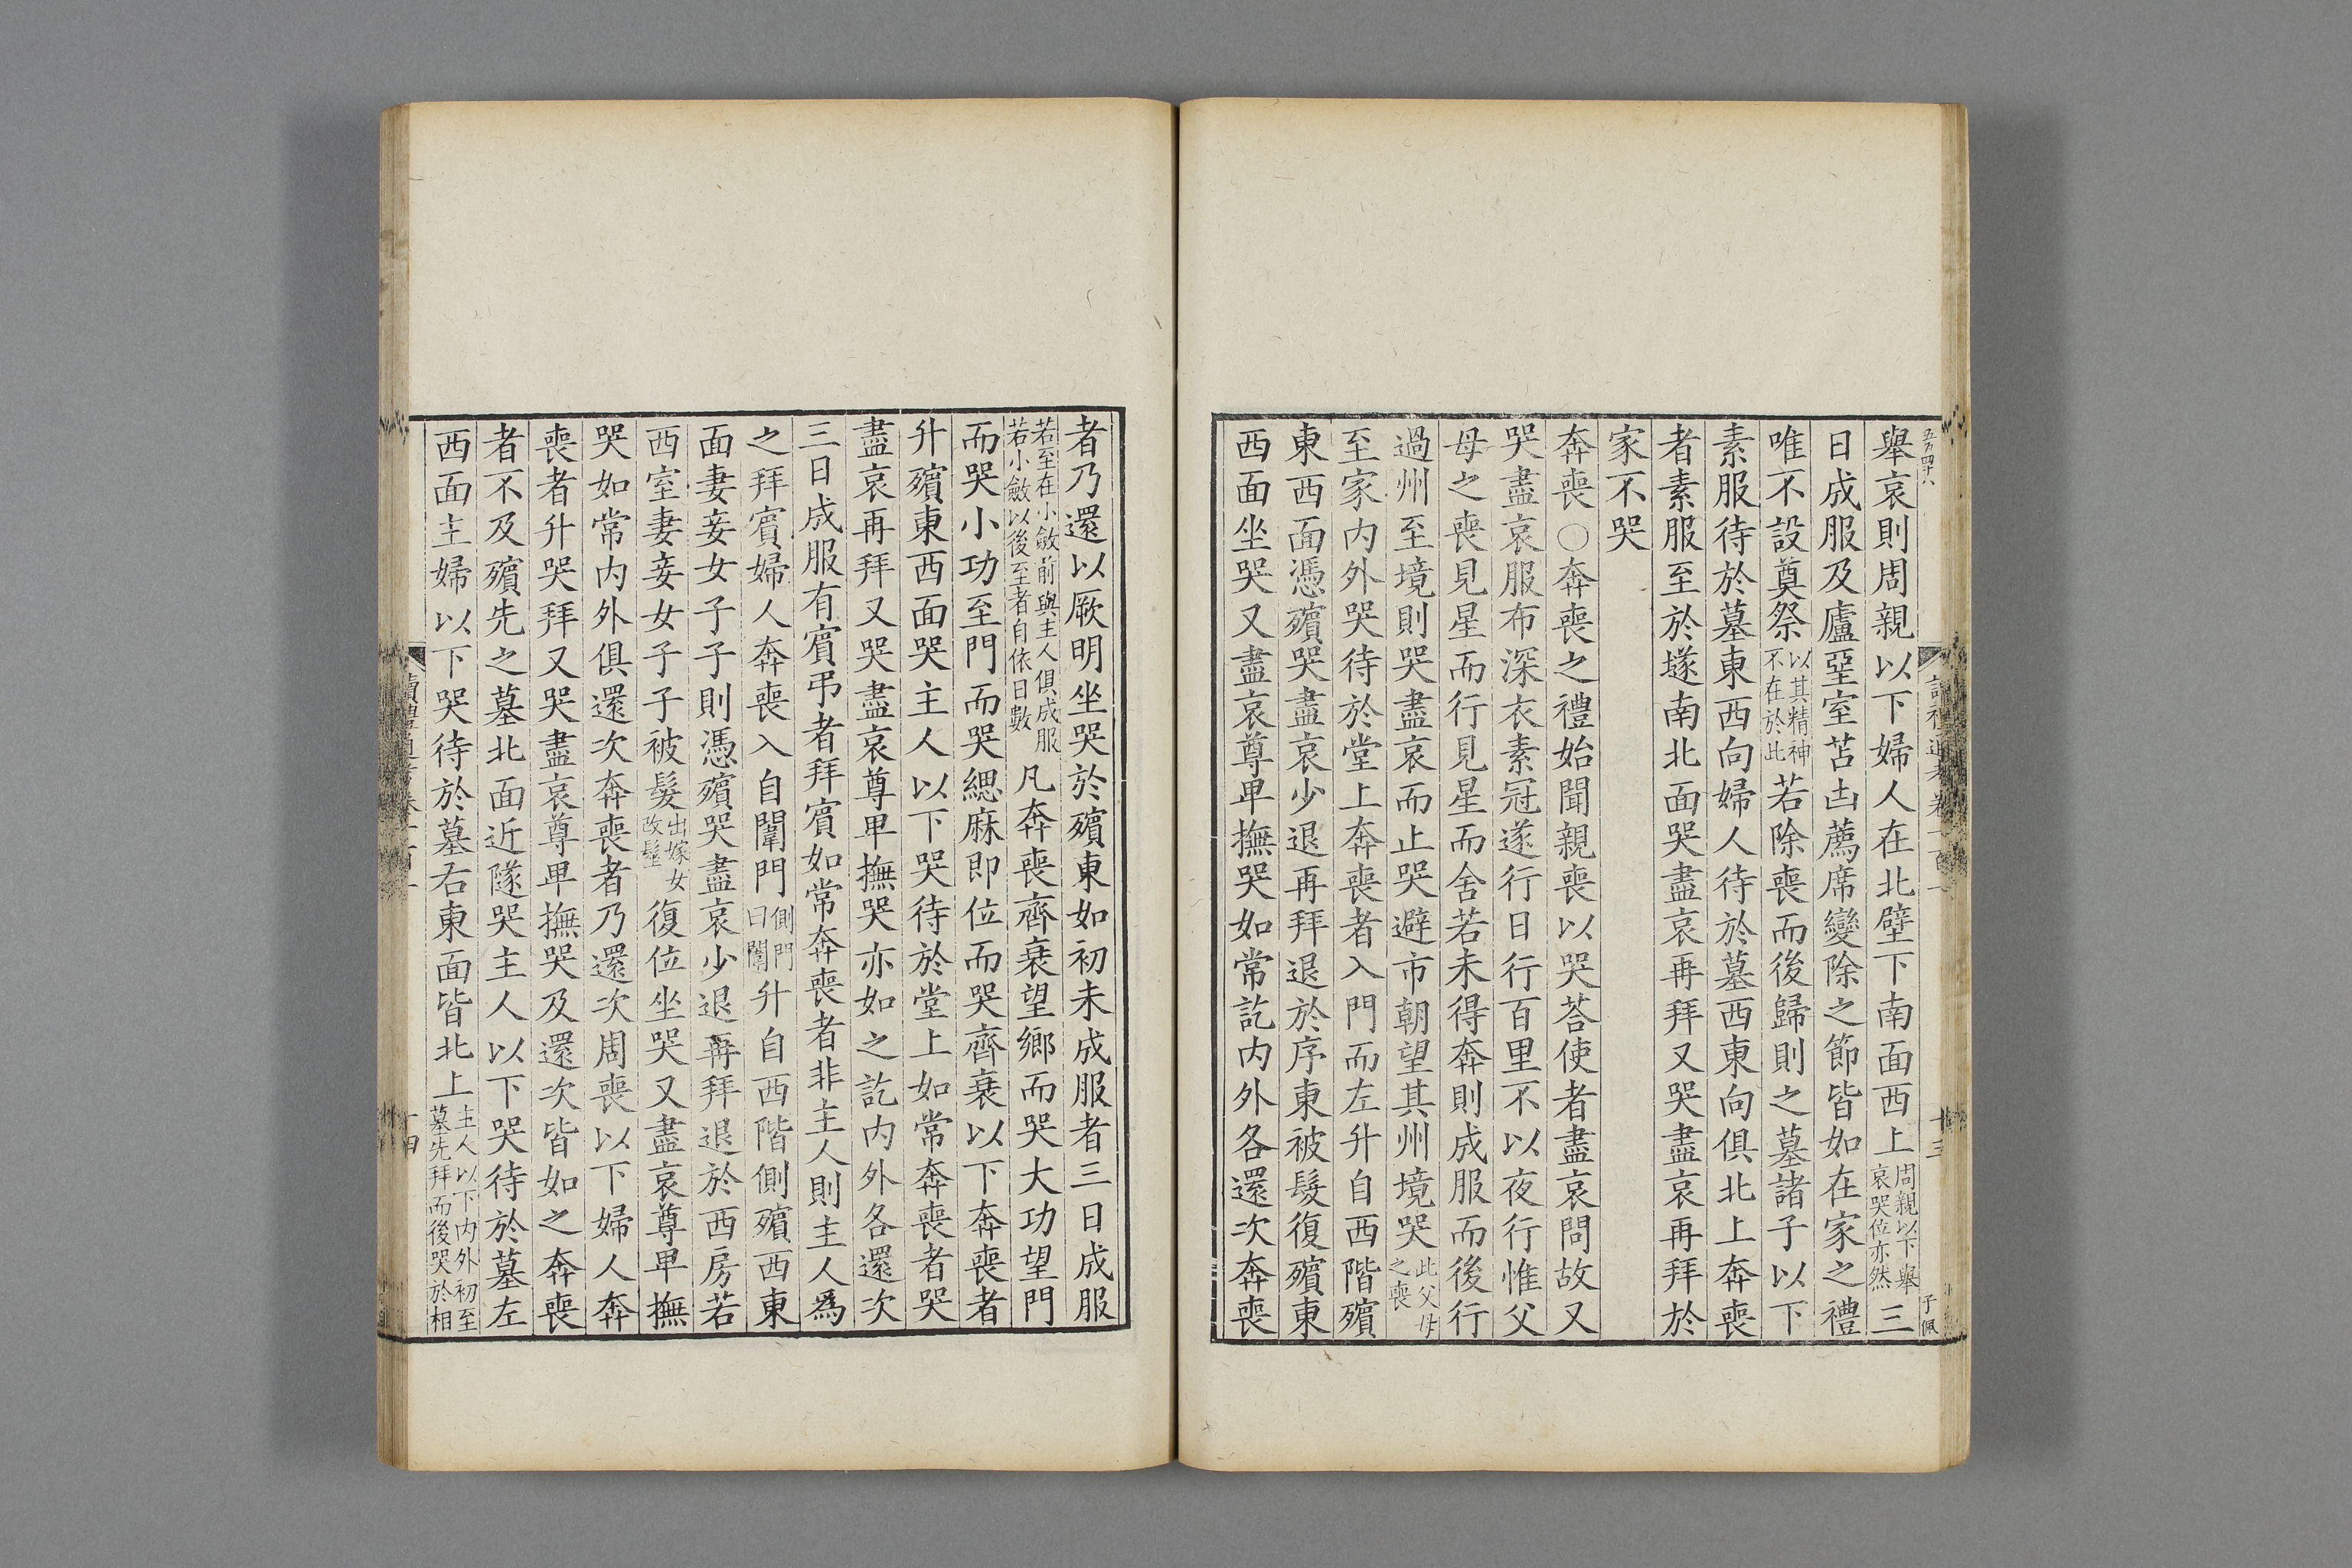 五百四十八
舉哀則周親以下婦人在北壁下南面西上周親以下舉哀哭位亦然三
日成服及廬堊室苫凷薦席變除之節皆如在家之禮
唯不設奠祭以其精神不在於此若除喪而後歸則之墓諸子以下
素服待於墓東西向婦人待於墓西東向俱北上奔喪
者素服至於墜南北面哭盡哀再拜又哭盡哀再拜於
家不哭
奔喪○奔喪之禮始聞親喪以哭荅使者盡哀問故又
哭盡哀服布深衣素冠遂行日行百里不以夜行惟父
母之喪見星而行見星而舍若未得奔則成服而後行
過州至境則哭盡哀而止哭避市朝望其州境哭此父母之喪
至家內外哭待於堂上奔喪者入門而左升自西階殯
東西面憑殯哭盡哀少退再拜退於序東被髮復殯東
西面坐哭又盡哀尊卑撫哭如常訖內外各還次奔喪
讀禮通考卷一百一
十三
子佩
者乃還以厥明坐哭於殯東如初未成服者三日成服
若至在小斂前與主人俱成服若小斂以後至者自依日數凡奔喪齊衰望鄉而哭大功望門
而哭小功至門而哭緦麻即位而哭齊衰以下奔喪者
升殯東西面哭主人以下哭待於堂上如常奔喪者哭
盡哀再拜又哭盡哀尊卑撫哭亦如之訖內外各還次
三日成服有賓弔者拜賓如常奔喪者非主人則主人爲
之拜賓婦人奔喪入自闈門側門曰闈升自西階側殯西東
面妻妾女子子則憑殯哭盡哀少退再拜退於西房若
西室妻妾女子子被髮出嫁女改髽復位坐哭又盡哀尊卑撫
哭如常內外俱還次奔喪者乃還次周喪以下婦人奔
喪者升哭拜又哭盡哀尊卑撫哭及還次皆如之奔喪
者不及殯先之墓北面近隧哭主人以下哭待於墓左
西面主婦以下哭待於墓右東面皆北上主人以下內外初至墓先拜而後哭於相
讀禮通考卷一百一
十四